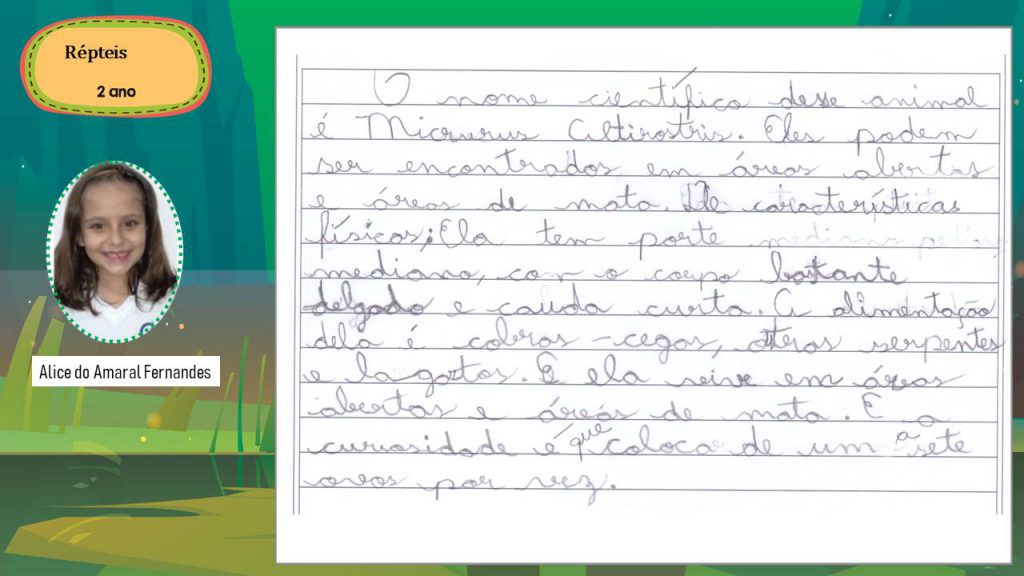 Répteis
2 ano
Alice do Amaral Fernandes
O nome científico desse animal
é Micrurus Altirostris. Eles podem
ser encontrados em áreas abertas
e áreas de mata. De características
físicas; Ela tem porte mediano
mediano, com o corpo bastante
delgado e cauda curta. A alimentação
dela é cobras-cegas, serpentes
e lagartos. E ela vive em áreas
abertas e áreas de mata. E a
curiosidade é que coloca de um a sete
ovos por vez.